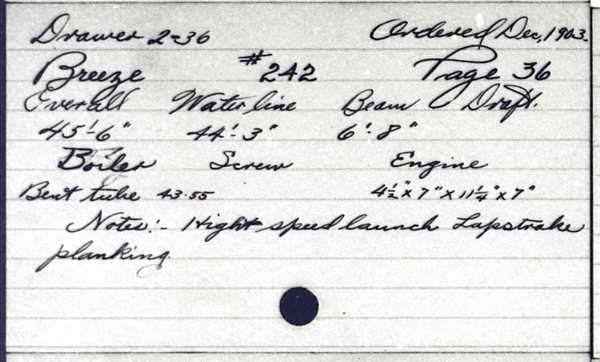 Drawer 2-36 Ordered Dec, 1903.
Breeze #242 Page 36
Overall Water line Beam Draft.
45'-6" 44'-3" 6'-8"
Boiler Screw Engine
Bent tube 43.55 4½" x 7" x 11¼" x 7"
Notes:- Hight speed launch Lapstrake
planking